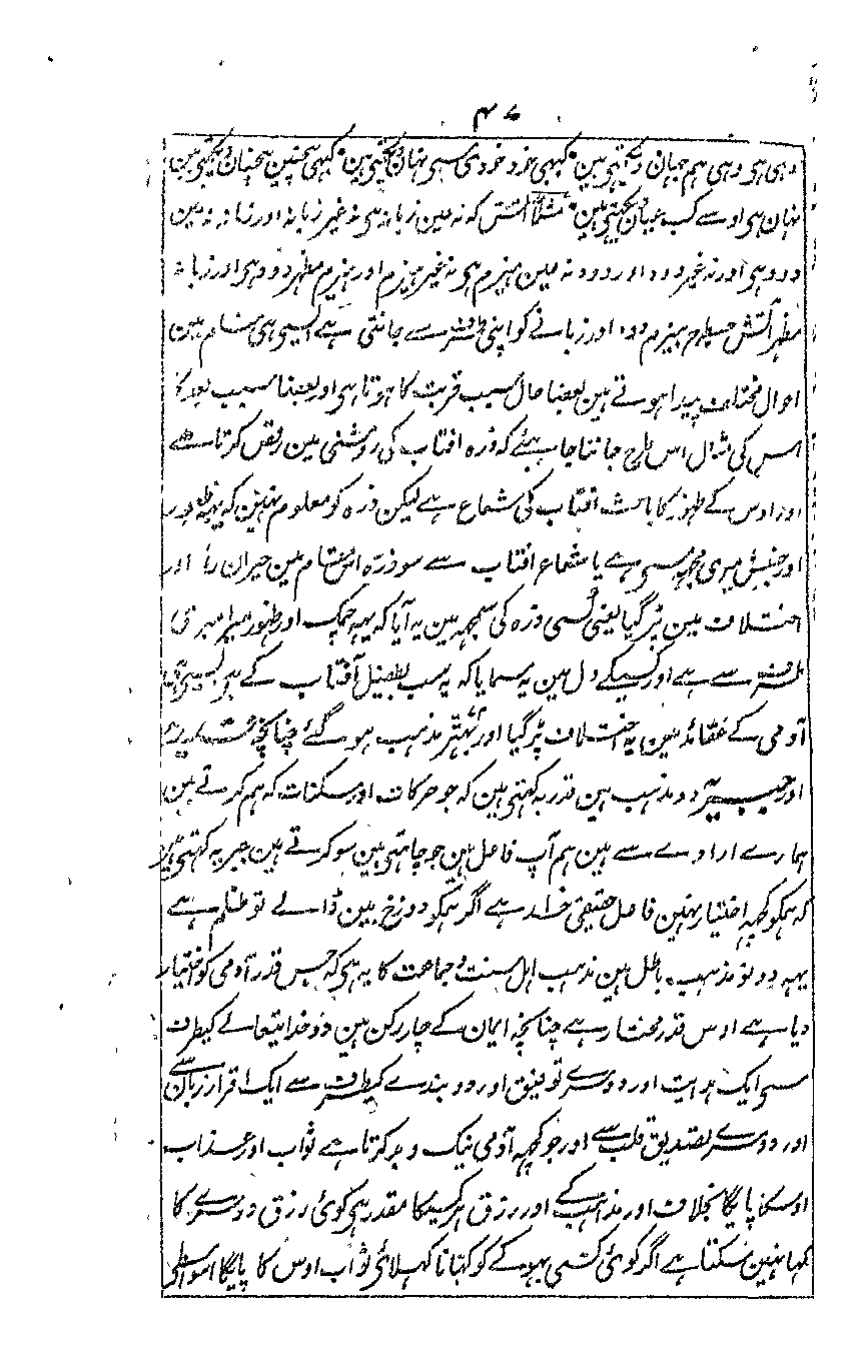 ۴۷
وہی ہی وہی ہم جہان دیکھتی ہین کبھی خرد خودی سی نہان دیکھتی ہین کبھی چنین چنان دیکھتی ہین
نہان ہی اوسے کب عیان دیکھتی ہین مثلاً آتش کہ نہ عین زبانہ ہی نہ غیر زبانہ اور زبانہ نہ عین
دود ہی اور نہ غیر دود اور دود نہ عین ہیزم ہی نہ غیر ہیزم اور ہیزم مظہر دود ہی اور زبانہ
مظہر آتش جسطرح ہیزم دود اور زبانے کو اپنی طرف سے جانتی ہے ایسی ہی مقام مین
احوال مختلف پیدا ہوتے ہین بعضا حال بسبب قربت کا ہوتا ہی اور بعضا بسبب بعد کے
اس کی مثال اس طرح جاننا چاہیئے کہ ذرہ افتاب کی روشنی مین رقص کرتا ہے
اور اوس کے ظہور کا باعث افتاب کی شعاع ہے لیکن ذرہ کو معلوم نہین کہ یہہ ظہور
اور جنبش میری مجھہ سی ہے یا شعاع افتاب سے سو ذرہ اس مقام مین حیران رہا اور
اختلاف مین پڑ گیا یعنی کسی ذرہ کی سمجھہ مین یہ آیا کہ یہہ چمک اور ظہور میرا میری
طرف سے ہے اور کسیکے دل مین یہ سمایا کہ یہ سب بطفیل آفتاب کے ہی ایسی ہی
آدمی کے عقائد مین یہ اختلاف پڑ گیا اور بہتر مذہب ہو گئے چنانچہ قدریہ
اور جبریہ دو مذہب ہین قدریہ کہتی ہین کہ جو حرکات اور سکنات کہ ہم کرتے ہین
ہمارے ارادے سے ہین ہم آپ فاعل ہین جو چاہتی ہین سو کرتے ہین جبریہ کہتی ہین
کہ ہمکو کچھہ اختیار نہین فاعل حقیقی خدا ہے اگر ہمکو دوزخ مین ڈالے تو ظلم ہے
یہہ دونو مذہب باطل ہین مذہب اہل سنت و جماعت کا یہ ہی کہ جس قدر آدمی کو اختیار
دیا ہے اوس قدر مختار ہے چنانچہ ایمان کے چار رکن ہین دو خدایتعالے کیطرف
سی ایک ہدایت اور دوسرے توفیق اور دو بندے کیطرف سے ایک اقرار زبان سے
اور دوسرے تصدیق قلب سے اور جو کچھہ آدمی نیک و بد کرتا ہے ثواب اور عذاب
اوسکا پایگا بخلاف اور مذاہب کے اور رزق ہر کسیکا مقدر ہی کوئی رزق دوسرے کا
کہا نہین سکتا ہے اگر کوئی کسی بہوکے کو کہانا کہلائی ثواب اوس کا پایگا اسواسطی